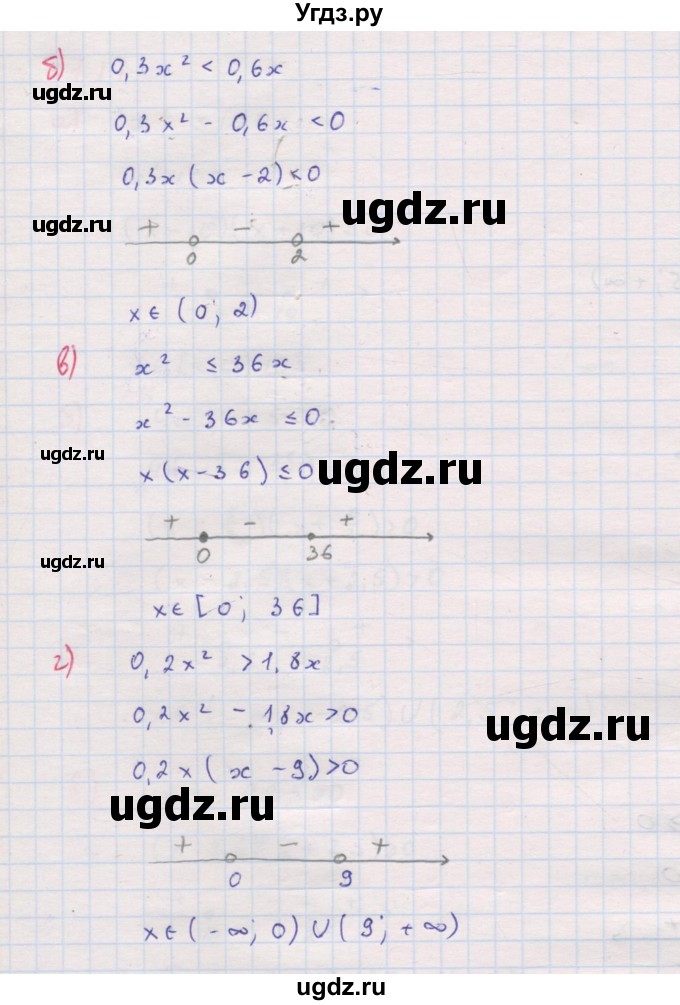 Угдз.ру
б) 0,3x² < 0,6x
ugdz.ru
0,3x² - 0,6x < 0
0,3x(x - 2) < 0
ugdz.ru ugdz.ru
+ - +
0 2
x ∈ (0; 2)
в) x² ≤ 36x
x² - 36x ≤ 0
ugdz.ru
x(x - 36) ≤ 0 ugdz.ru
+ - +
0 36
ugdz.ru
x ∈ [0; 36]
г) 0,2x² > 1,8x
0,2x² - 1,8x > 0
ugdz.ru
0,2x(x - 9) > 0
ugdz.ru
+ - +
0 9
x ∈ (-∞; 0) ∪ (9; +∞)
Угдз.ру